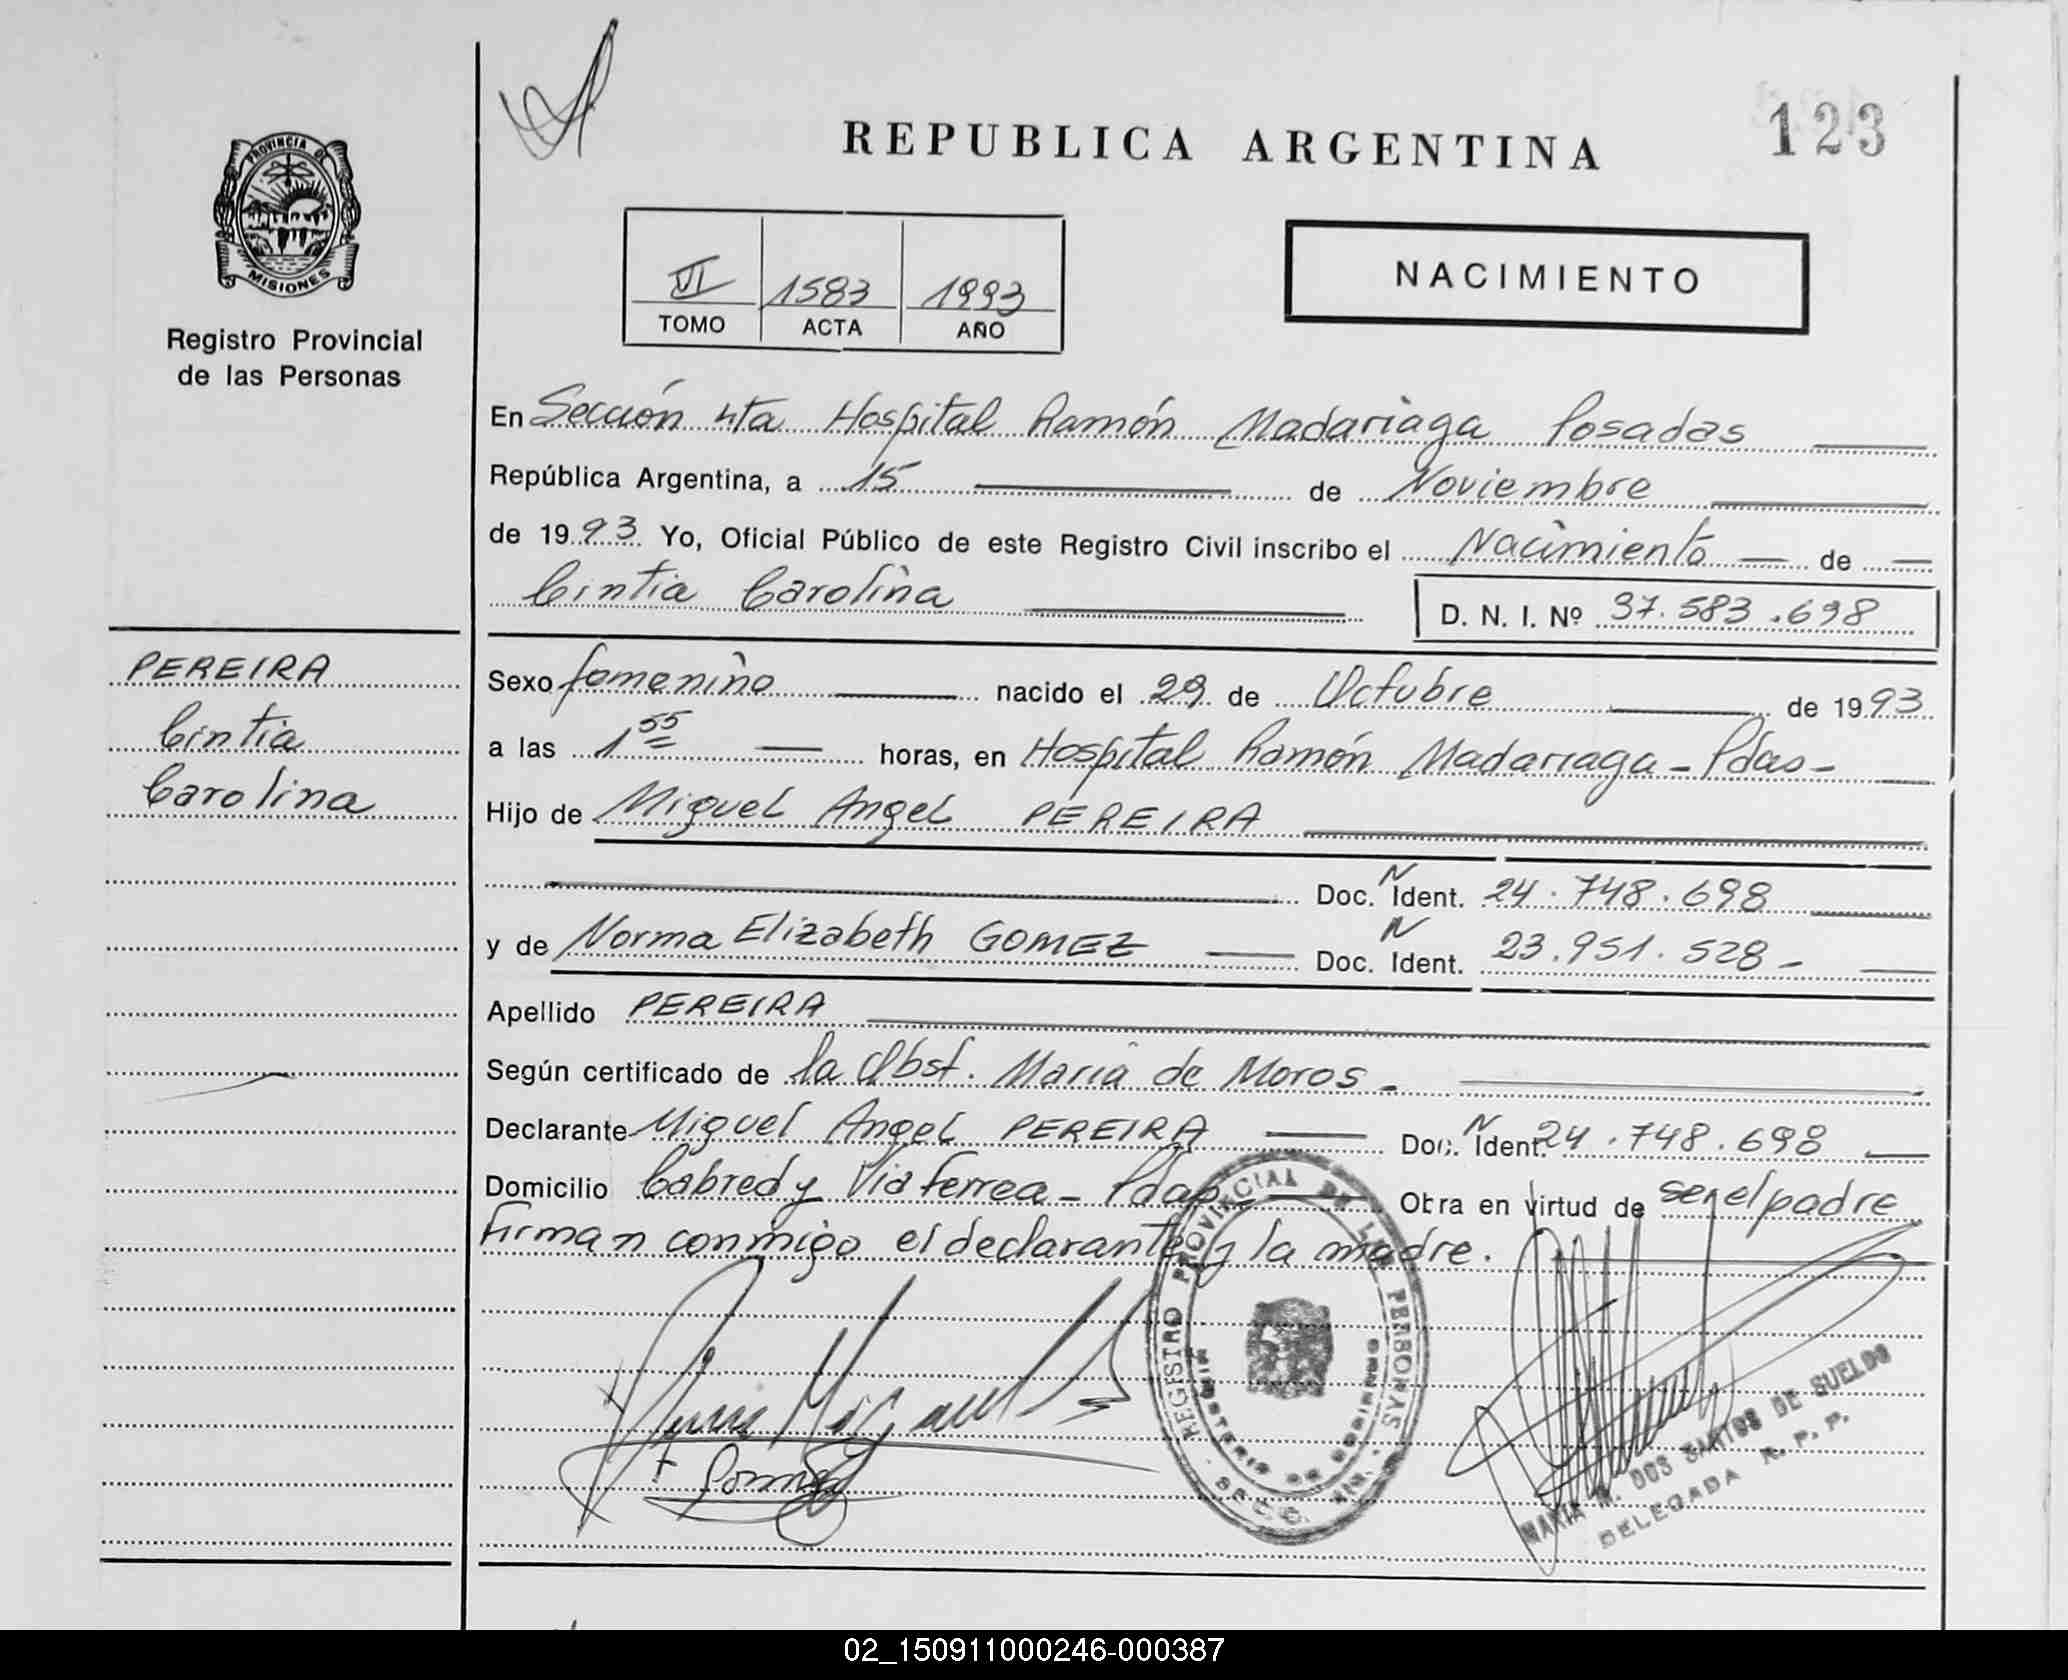 REPUBLICA ARGENTINA
123
PROVINCIA DE
MISIONES
Registro Provincial
de las Personas
VI 1583 1993
TOMO ACTA AÑO
NACIMIENTO
En Sección 4ta Hospital Ramón Madariaga Posadas
República Argentina, a 15 de Noviembre
de 1993 Yo, Oficial Público de este Registro Civil inscribo el Nacimiento de
Cintia Carolina D. N. I. Nº 37.583.698
PEREIRA
Cintia
Carolina
Sexo femenino nacido el 29 de Octubre de 1993
a las 1 55 horas, en Hospital Ramón Madariaga - Pdas -
Hijo de Miguel Angel PEREIRA
Doc. N Ident. 24.748.698
y de Norma Elizabeth GOMEZ Doc. N Ident. 23.951.528 -
Apellido PEREIRA
Según certificado de la Obst. María de Moros -
Declarante Miguel Angel PEREIRA Doc. N Ident. 24.748.698
Domicilio Cabred y Via Ferrea - Pdas Obra en virtud de ser el padre
Firman conmigo el declarante y la madre.
REGISTRO PROVINCIAL DE LAS PERSONAS
MINISTERIO DE GOBIERNO
MARIA M. DOS SANTOS DE SUELDO
DELEGADA R. P. P.
02_150911000246-000387